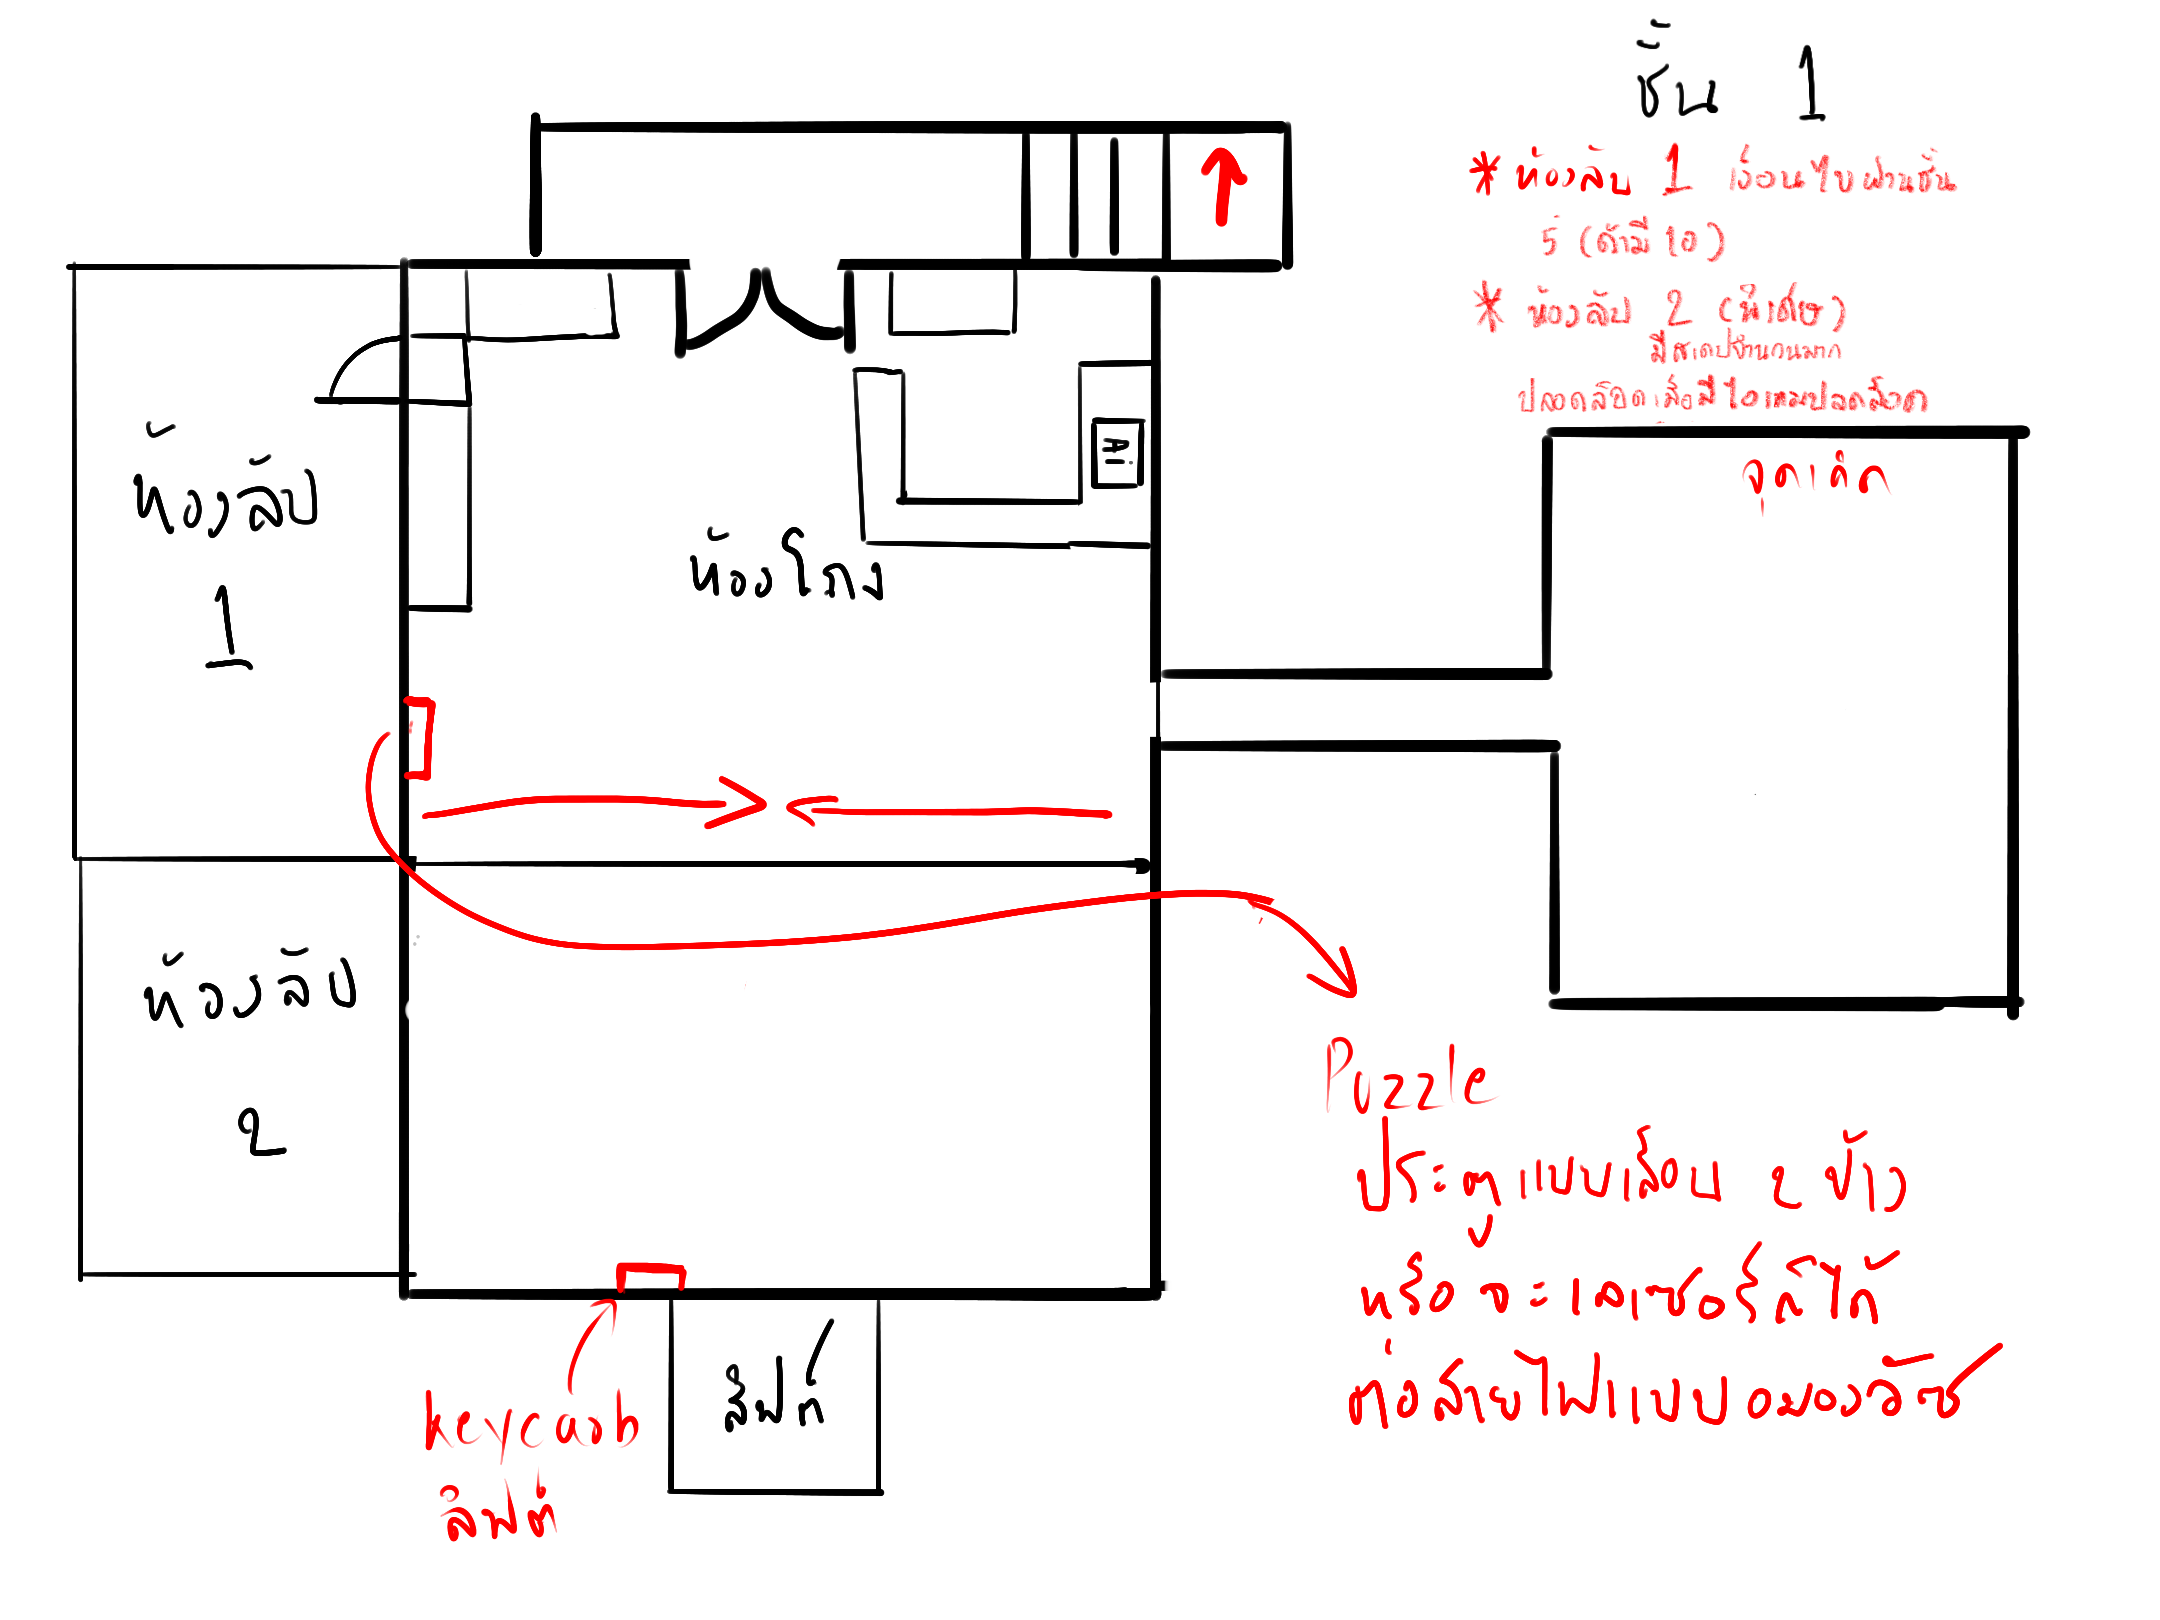 ชั้น 1
*ห้องลับ 1 เงื่อนไขผ่านชั้น
5 (ถ้ามี 10)
*ห้องลับ 2 (พิเศษ)
มีสเตปจำนวนมาก
ปลดล็อคเมื่อมีไอเทมปลดล็อค
จุดเกิด
ห้องลับ
1
ห้องโถง
ห้องลับ
2
Puzzle
ประตูแบบเลื่อน 2 ข้าง
หรือจะเลเซอร์ก็ได้
ต่อสายไฟแบบอมองอัซ
keycard
ลิฟต์
ลิฟต์